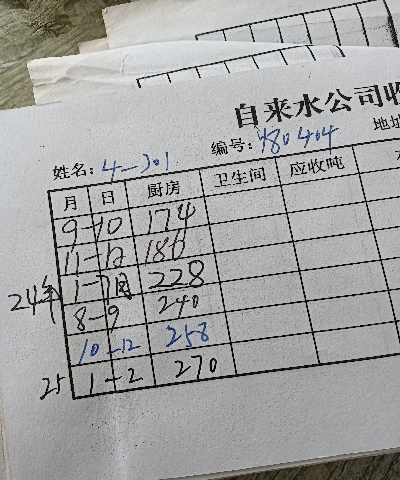 自来水公司收
姓名: 4-301 编号: 480404 地址
月 日 厨房 卫生间 应收吨
9-10 174
11-12 186
24年 1-7月 228
8-9 240
10-12 258
25 1-2 270